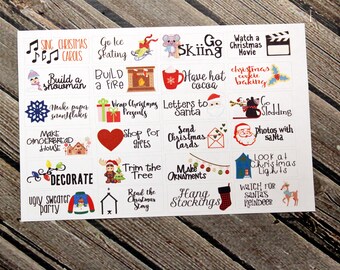 SING CHRISTMAS
CAROLS
Go Ice
Skating
Go
Skiing
Watch a
Christmas
Movie
Build a
snowman
BUILD
a fire
Have hot
cocoa
christmas
cookie
baking
Make paper
snowflakes
Wrap Christmas
Presents
Letters to
santa
Go
Sledding
Make
GINGERBREAD
House
Shop for
Gifts
Send
Christmas
Cards
Photos with
santa
DECORATE
Trim the
Tree
Make
ORNAMENTS
Look at
Christmas
Lights
ugly sweater
party
Read the
Christmas
Story
Hang
Stockings
WATCH FOR
SANTA'S
REINDEER